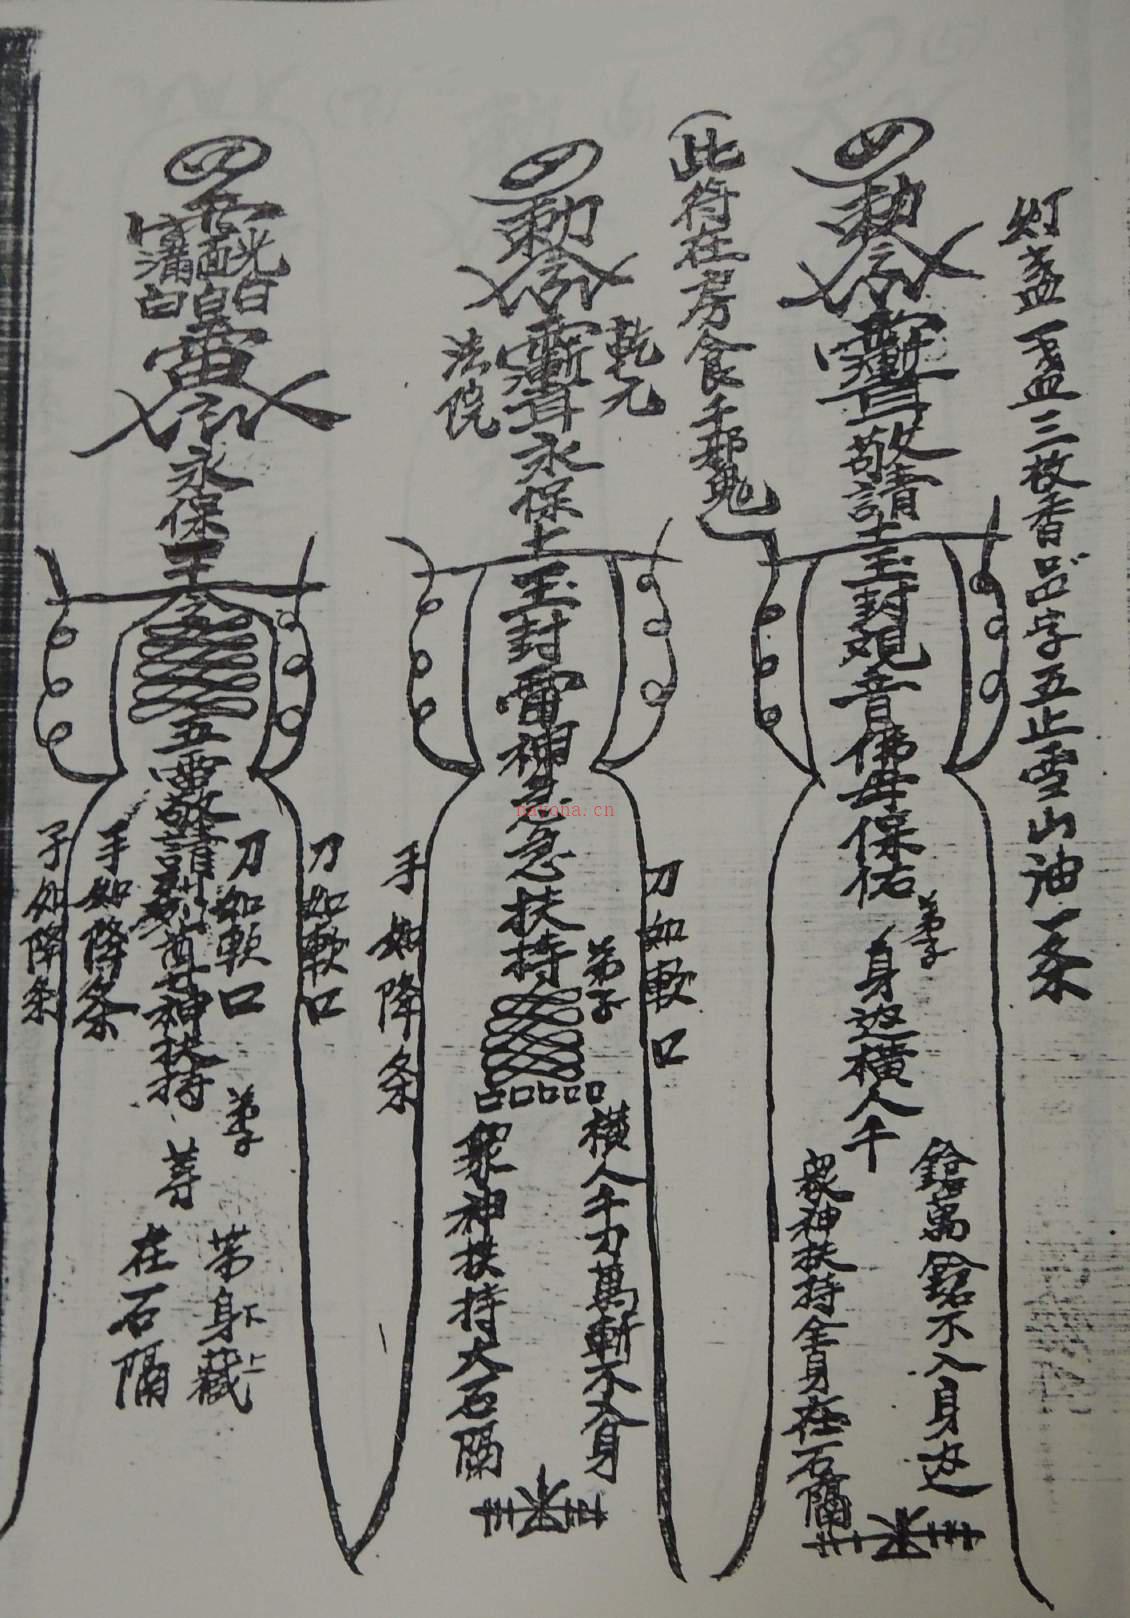 灯盏一盏三枚香品字五止雪山油一条
勅令
敬請
玉封观音佛母保佑
弟子
身边橫人千
鎗萬鎗不入身边
眾神扶持全身在石隔
(此符在房食千邪鬼
勅令
乾元
法院
永保
玉封雷神急急扶持
弟子
刀如軟口
手如降条
橫人千刀萬斬不入身
眾神扶持大石隔
nayona.cn
雷令
永保
五雷敬請
神扶持
刀如軟口
刀如軟口
手如降条
子如降条
弟子
带身上藏
在石隔